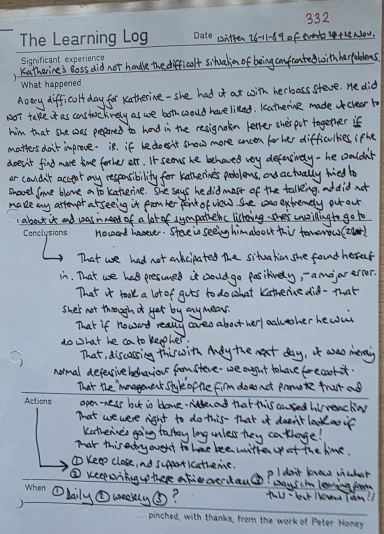 332
The Learning Log Date written 26-11-89 of events 24th Nov.
Significant experience
Katherine's Boss did not handle the difficult situation of being confronted with her problems.
What happened
A very difficult day for Katherine - she had it out with her boss Steve. He did
not take it as constructively as we both would have liked. Katherine made it clear to
him that she was prepared to hand in the resignation letter she's put together if
matters don't improve - i.e. if he doesn't show more concern for her difficulties, if he
doesn't find more time for her etc. It seems he behaved very defensively - he wouldn't
or couldn't accept any responsibility for Katherine's problems, and actually tried to
shovel some blame on to Katherine. She says he did most of the talking, and did not
make any attempt at seeing it from her point of view. She was extremely put out
about it and was in need of a lot of sympathetic listening - she's willing to go to
Conclusions Howard however. Steve is seeing him about this tomorrow
That we had not anticipated the situation she found herself
in. That we had presumed it would go positively, - a major error.
That it took a lot of guts to do what Katherine did - that
she's not through it yet by any means.
That if Howard really cares about her / values her he will
do what he can to keep her.
That, discussing this with Andy the next day, it was merely
normal defensive behaviour from Steve - we ought to have forecast it.
That the "management style of the firm does not promote trust and
Actions open-ness but is blame-ridden and that this caused his reaction
That we were right to do this - that it doesn't look as if
Katherine's going to stay long unless they can change!
That this entry ought to have been written up at the time.
① Keep close, and support Katherine.
② Keep writing up these entries every day ③ ? I don't know in what
ways I'm learning from
When ① Daily ② weekly ③ ? this - but I know I am!!
....pinched, with thanks, from the work of Peter Honey